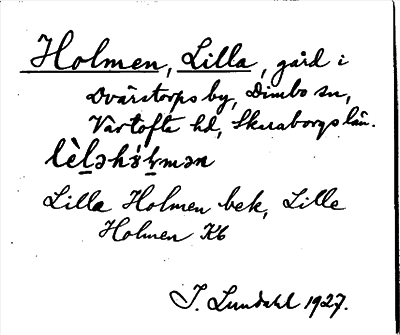 Holmen, Lilla, gård i
Dvärstorps by, Dimbo sn,
Vartofta hd, Skaraborgs län.
Lilla Holmen bek, Lille
Holmen Kb
I. Lundahl 1927.